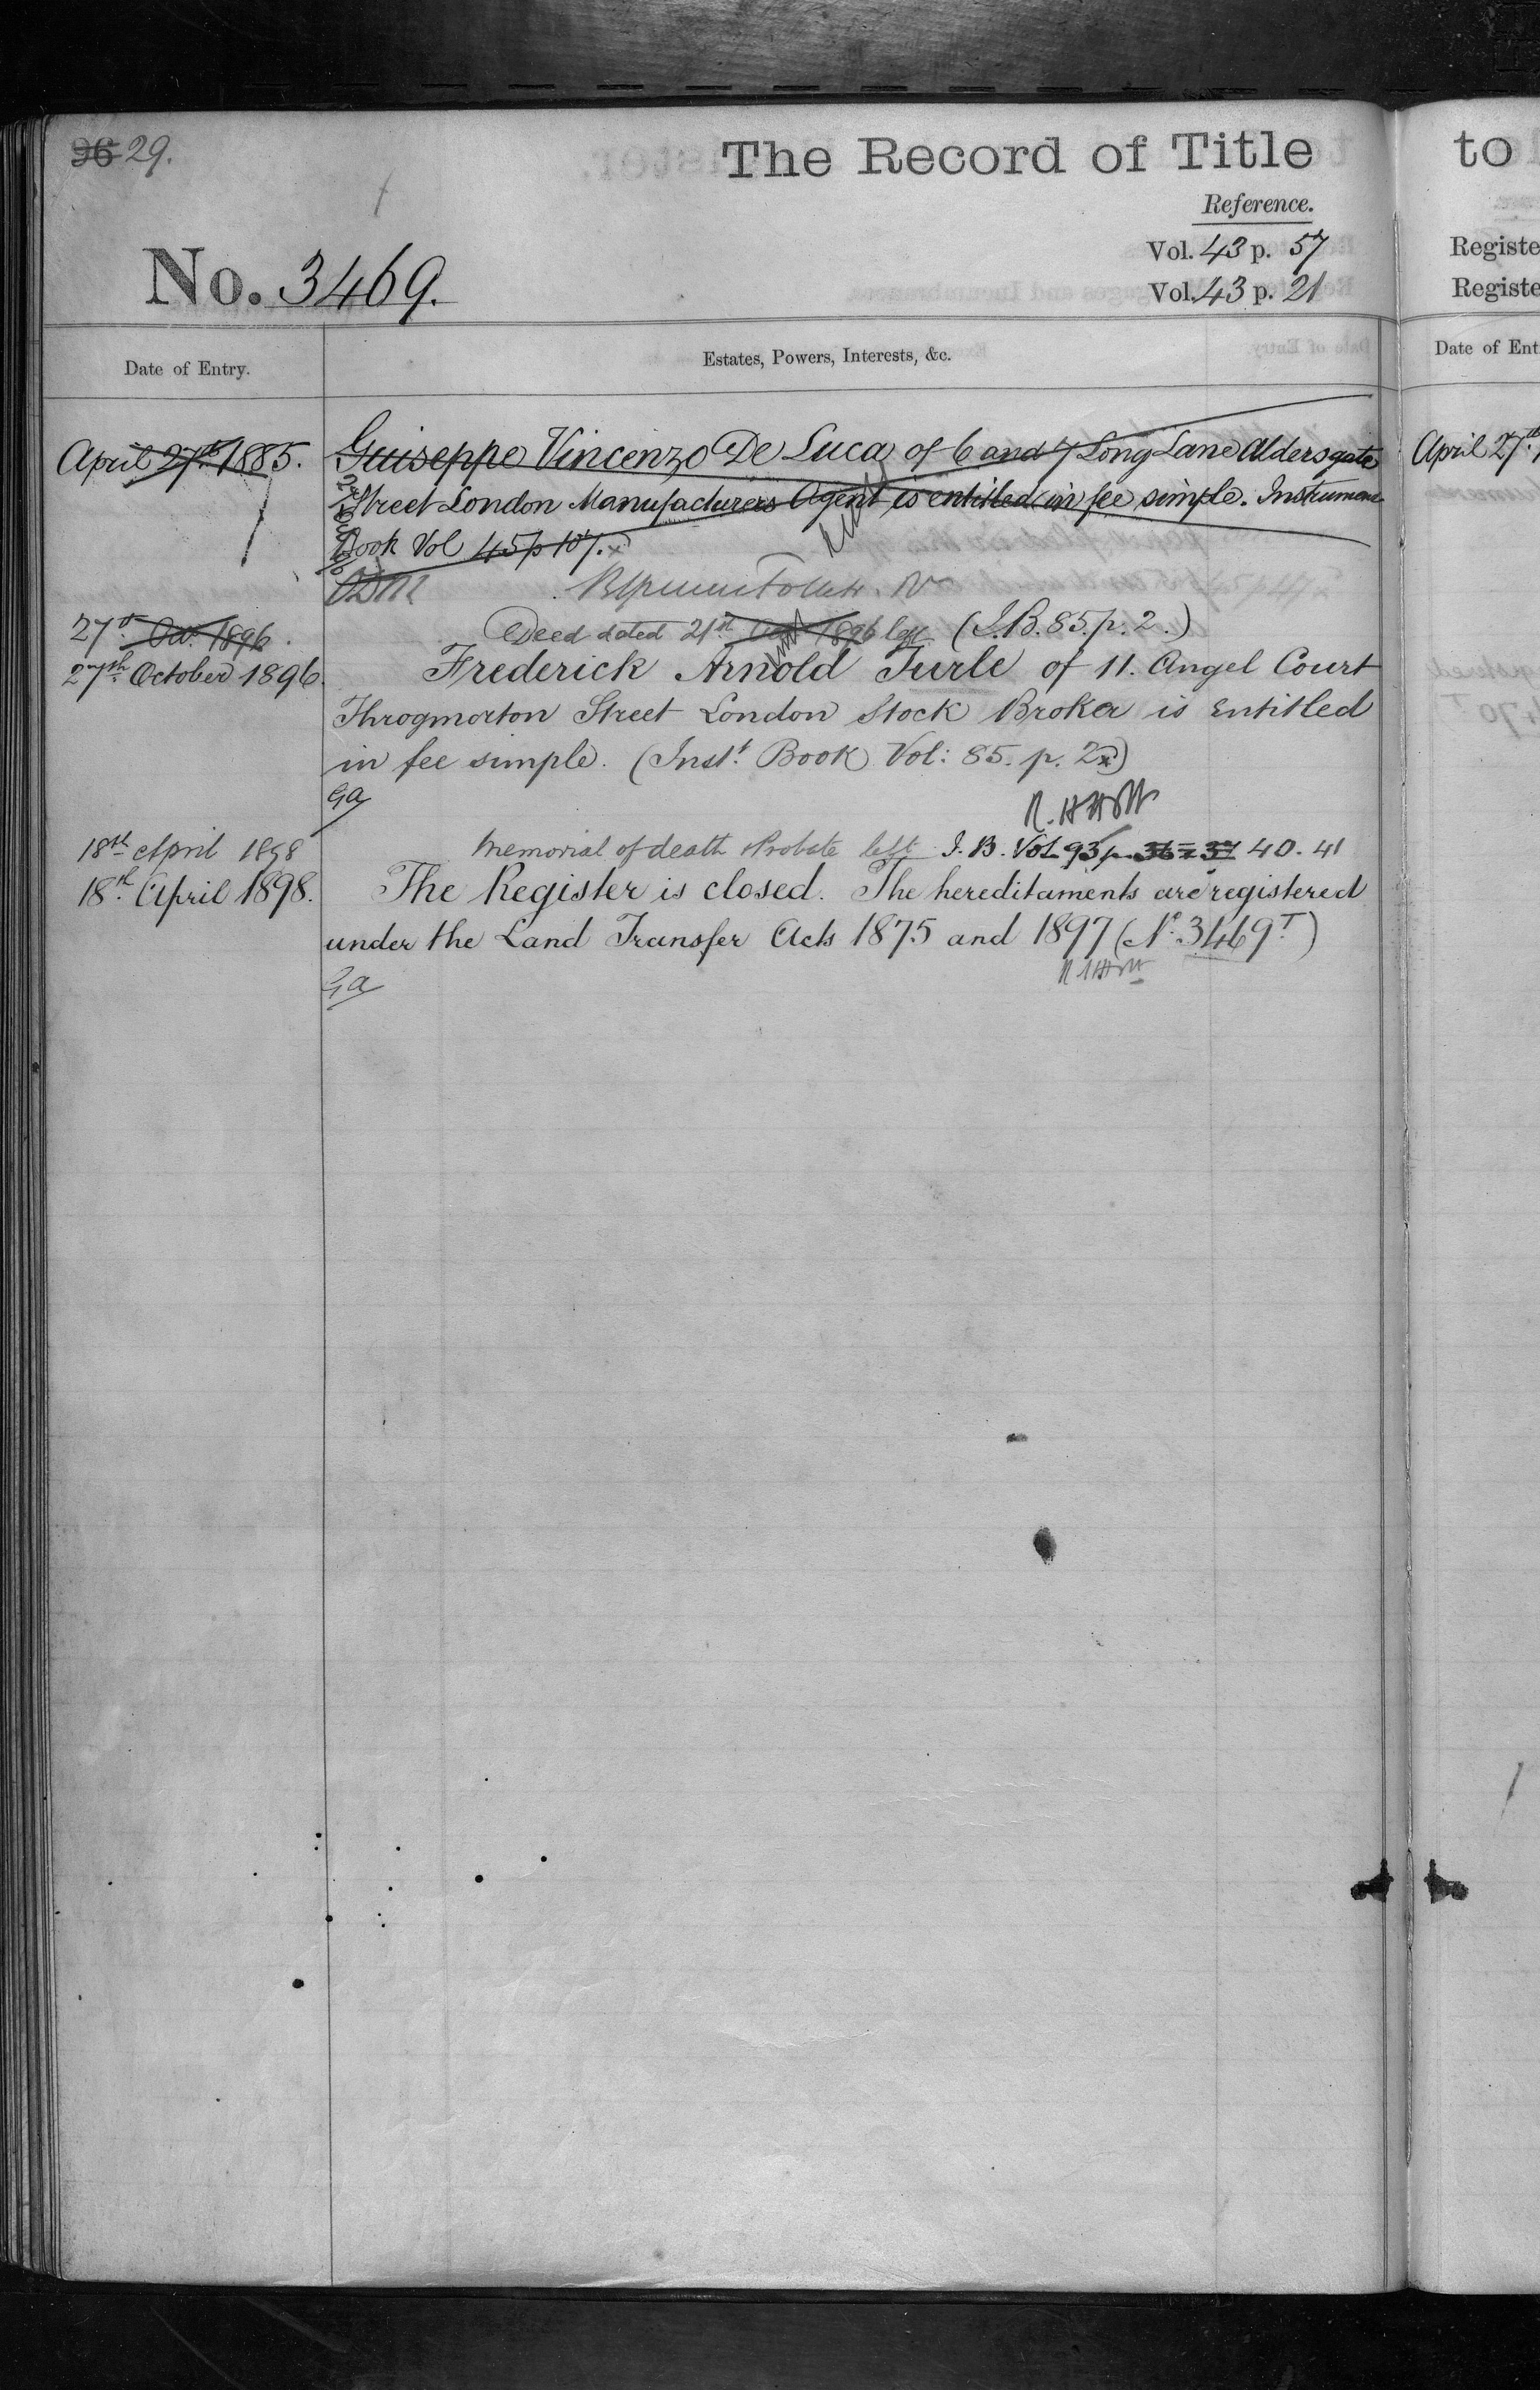 96 29.
The Record of Title
Reference.
Vol. 43 p. 57
Vol. 43 p. 21
No. 3469.
Date of Entry.
Estates, Powers, Interests, &c.
April 27th 1885.
Guiseppe Vincenzo De Luca of 6 and 7 Long Lane Aldersgate
Street London Manufacturers Agent is entitled in fee simple. Instrument
Book Vol 45 p 107. x
27th Oct. 1896.
Deed dated 21st Oct 1896 left (I.B. 85. p. 2.)
27th October 1896.
Frederick Arnold Turle of 11. Angel Court
Throgmorton Street London Stock Broker is Entitled
in fee simple. (Inst.t Book Vol: 85. p. 2x)
Ga
18th April 1898
Memorial of death & Probate left I.B. Vol 93 p. 36 & 37 40. 41
18th April 1898.
The Register is closed. The hereditaments are registered
under the Land Transfer Acts 1875 and 1897 (No. 3469 T)
Ga
to
Registe
Registe
Date of Ent
April 27th 1